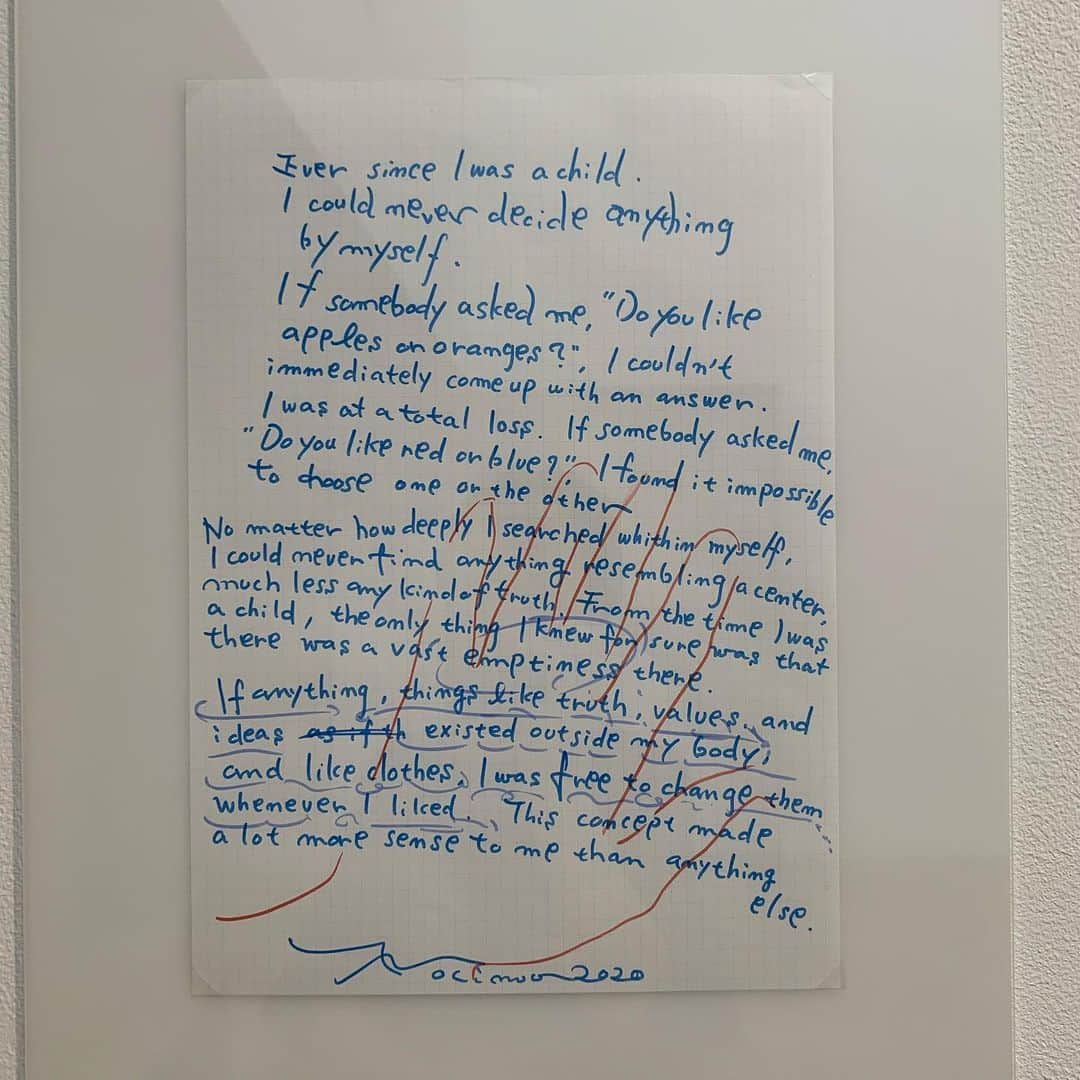 Ever since I was a child.
I could never decide anything
by myself.
If somebody asked me, "Do you like
apples or oranges?", I couldn't
immediately come up with an answer.
I was at a total loss. If somebody asked me,
"Do you like red or blue?", I found it impossible
to choose one or the other
No matter how deeply I searched whithin myself,
I could never find anything resembling a center,
much less any kind of truth. From the time I was
a child, the only thing I knew for sure was that
there was a vast emptiness there.
If anything, things like truth, values, and
ideas as if th existed outside my body,
and like clothes, I was free to change them
whenever I liked. This concept made
a lot more sense to me than anything
else.
2020